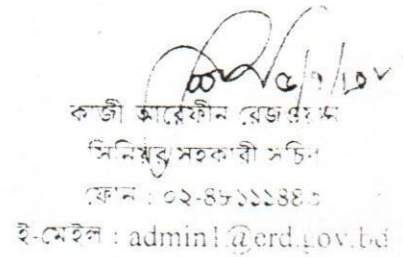 কাজী আরেফীন রেজওয়ান
সিনিয়র সহকারী সচিব
ফোন : ০২-৪৮১১১৪৪৩
ই-মেইল : admin1@erd.gov.bd